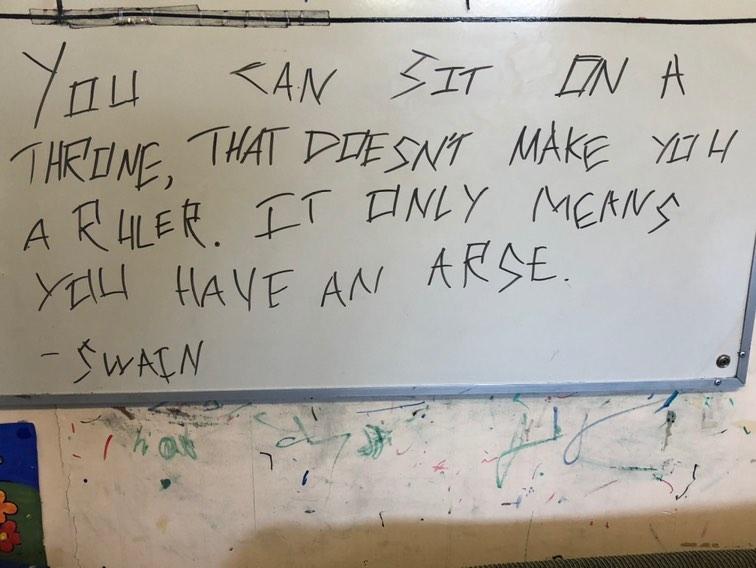 YOU CAN SIT ON A
THRONE, THAT DOESN'T MAKE YOU
A RULER. IT ONLY MEANS
YOU HAVE AN ARSE.
- SWAIN